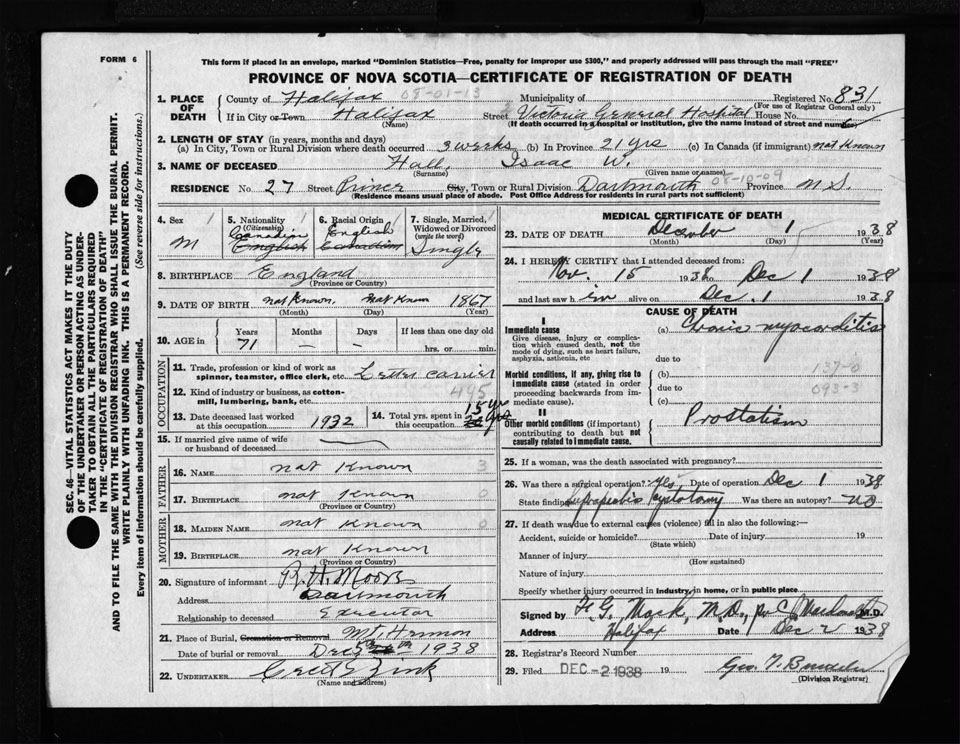 FORM 6
This form if placed in an envelope, marked "Dominion Statistics—Free, penalty for improper use $300," and properly addressed will pass through the mail "FREE"
PROVINCE OF NOVA SCOTIA—CERTIFICATE OF REGISTRATION OF DEATH
SEC. 46—VITAL STATISTICS ACT MAKES IT THE DUTY
OF THE UNDERTAKER OR PERSON ACTING AS UNDER-
TAKER TO OBTAIN ALL THE PARTICULARS REQUIRED
IN THE "CERTIFICATE OF REGISTRATION OF DEATH"
AND TO FILE THE SAME WITH THE DIVISION REGISTRAR WHO SHALL ISSUE THE BURIAL PERMIT.
WRITE PLAINLY WITH UNFADING INK. THIS IS A PERMANENT RECORD.
Every item of information should be carefully supplied. (See reverse side for instructions.)
1. PLACE OF DEATH
County of Halifax 08-01-13 Municipality of Registered No. 831
(For use of Registrar General only)
If in City or Town Halifax Street Victoria General Hospital House No.
(Name) (If death occurred in a hospital or institution, give the name instead of street and number)
2. LENGTH OF STAY (in years, months and days)
(a) In City, Town or Rural Division where death occurred 3 weeks (b) In Province 21 yrs (c) In Canada (if immigrant) not Known
3. NAME OF DECEASED Hall, Isaac W.
(Surname) (Given name or names)
08-10-09
RESIDENCE No. 27 Street Prince City, Town or Rural Division Dartmouth Province N S.
(Residence means usual place of abode. Post Office Address for residents in rural parts not sufficient)
4. Sex 1
M
5. Nationality 1
(Citizenship)
Canadian
English
6. Racial Origin 1
English
Canadian
7. Single, Married, 1
Widowed or Divorced
(write the word)
Single
8. BIRTHPLACE England
(Province or Country)
9. DATE OF BIRTH not Known, not Known 1867
(Month) (Day) (Year)
10. AGE in
Years Months Days If less than one day old
71 — — hrs. or min.
OCCUPATION
11. Trade, profession or kind of work as
spinner, teamster, office clerk, etc. Letter carrier
12. Kind of industry or business, as cotton-
mill, lumbering, bank, etc. 495
13. Date deceased last worked
at this occupation 1932
14. Total yrs. spent in
this occupation 15 yrs
15. If married give name of wife
or husband of deceased —
FATHER
16. NAME not Known 3
17. BIRTHPLACE not Known 0
(Province or Country)
MOTHER
18. MAIDEN NAME not Known 0
19. BIRTHPLACE not Known
(Province or Country)
20. Signature of informant R. H. Moors
Address Dartmouth
Relationship to deceased Executor
21. Place of Burial, Cremation or Removal Mt. Hermon
Date of burial or removal Dec 1938
22. UNDERTAKER Zink
(Name and address)
MEDICAL CERTIFICATE OF DEATH
23. DATE OF DEATH December 1 1938
(Month) (Day) (Year)
24. I HEREBY CERTIFY that I attended deceased from:
Nov. 15 1938 to Dec 1 1938
and last saw h im alive on Dec. 1 1938
CAUSE OF DEATH
I
Immediate cause
Give disease, injury or complica-
tion which caused death, not the
mode of dying, such as heart failure,
asphyxia, asthenia, etc
(a) Chronic myocarditis
due to
Morbid conditions, if any, giving rise to
immediate cause (stated in order
proceeding backwards from im-
mediate cause).
(b) 137-0
due to 093-3
(c)
II
Other morbid conditions (if important)
contributing to death but not
causally related to immediate cause.
Prostatism
25. If a woman, was the death associated with pregnancy?
26. Was there a surgical operation? Yes Date of operation Dec 1 1938
State finding Suprapubic Cystotomy Was there an autopsy? No
27. If death was due to external causes (violence) fill in also the following:—
Accident, suicide or homicide? Date of injury 19
(State which)
Manner of injury
(How sustained)
Nature of injury
Specify whether injury occurred in industry, in home, or in public place
Signed by G. Mack, M.D., per C. Macdonald M.D.
Address Halifax Date Dec 2 1938
28. Registrar's Record Number
29. Filed DEC -2 1938 19 Geo.
(Division Registrar)